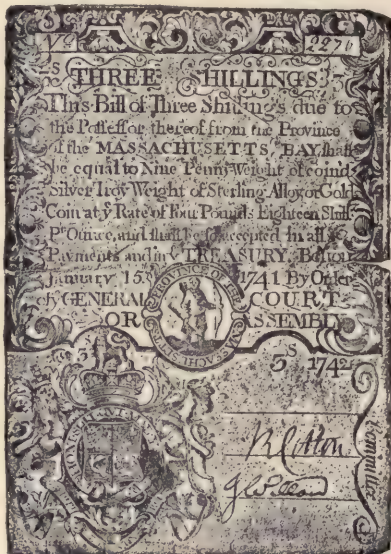 2270
THREE SHILLINGS
This Bill of Three Shillings due to
the Possessor thereof from the Province
of the MASSACHUSETTS BAY, shall
be equal to Nine Penny Weight of coin'd
Silver Troy Weight of Sterling Alloy or Gold
Coin at yͤ Rate of Four Pounds Eighteen Shill
Pͬ Ounce, and shall be accepted in all
Payments and in yͤ TREASURY. Boston
January 15. 1741 By Order
of yͤ GENERAL COURT
OR ASSEMBLY
PROVINCE OF THE
3ˢ 1742
Committee